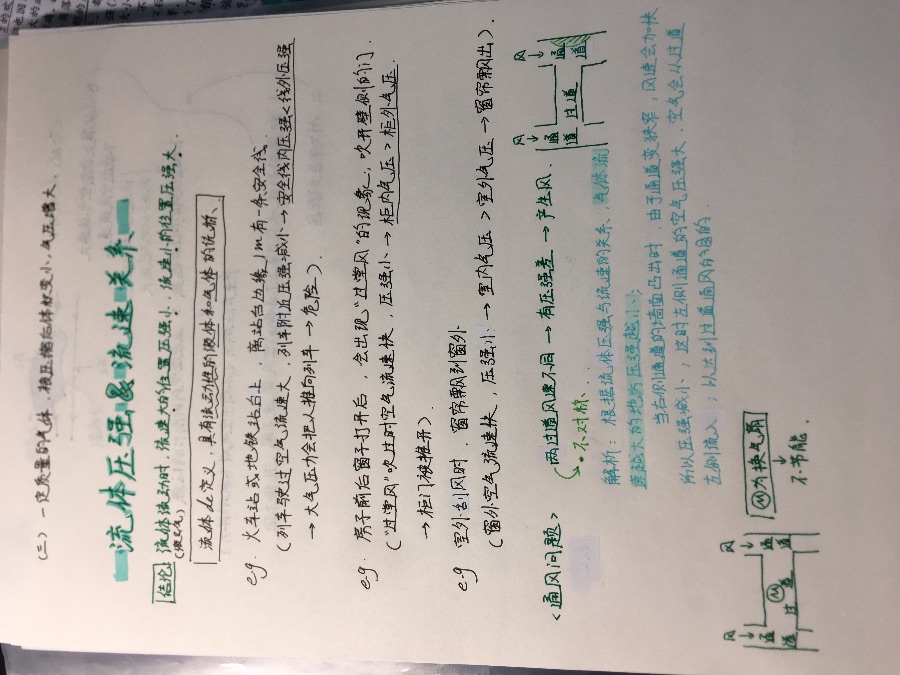 (二) 一定质量的气体，被压缩后体积变小，气压增大、
流体压强&流速关系、
结论: 流体流动时，流速大的位置压强小，流速小的位置压强大、
(液&气)
流体de定义、具有流动性的液体和气体的统称、
eg. 火车站或地铁站台上，离站台边缘1m有一条安全线
(列车驶过空气流速大，列车附近压强减小→安全线内压强<线外压强
→大气压力会把人推向列车→危险)、
eg. 房子前后窗子打开后，会出现“过堂风”的现象，吹开壁侧的门、
(“过堂风”吹过时空气流速快，压强小→柜内气压>柜外气压、
→柜门被推开)、
eg 室外刮风时，窗帘飘到窗外
(窗外空气流速快，压强小→室内气压>室外气压→窗帘飘出)、
<通风问题> 两过道风速不同→有压强差→产生风、
↳不对称、
风 风
通道 过道 通道
解析：根据流体压强与流速的关系，气体流
速越大的地方压强越小；
当右侧通道的墙面凸出时，由于通道变狭窄，风速会加快
所以压强减小；这时左侧通道的空气压强大，空气会从过道
左侧流入；以达到过道通风的目的、
风 风
通道 M 过道 通道
M为换气扇
↓
不节能、